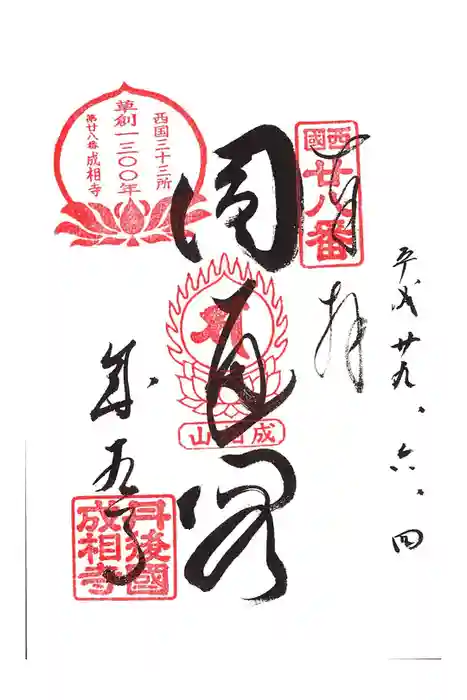 平成廿九、六、四
奉拝
西國
廿八番
圓通閣
成相山
西国三十三所
草創一三〇〇年
第廿八番成相寺
成相寺
丹後國
成相寺